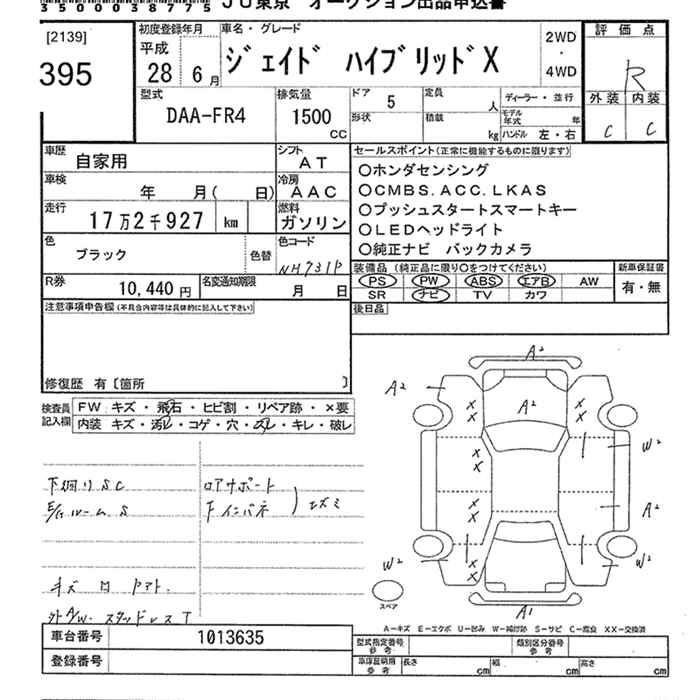 35000387​75 JU東京 オークション出品申込書
[2139]
395
初度登録年月
平成
28 6月
車名・グレード
ジェイド ハイブリッドX
2WD
・
4WD
評価点
R
外装 内装
C C
型式
DAA-FR4
排気量
1500
cc
ドア 5
形状
定員 人
積載 kg
ディーラー・並行
モデル年式 年
ハンドル 左・右
車歴 自家用
シフト AT
車検 年 月( 日)
冷房 AAC
走行 17万2千927 km
燃料 ガソリン
色 ブラック 色替
色コード NH731P
R券 10,440円
名変通知期限 月 日
セールスポイント(正常に機能するものに限ります)
○ホンダセンシング
○CMBS.ACC.LKAS
○プッシュスタートスマートキー
○LEDヘッドライト
○純正ナビ バックカメラ
装備品(純正品に限り○をつけてください)
PS PW ABS エアB AW
SR ナビ TV カワ
新車保証書
有・無
後日品
注意事項申告欄(不具合内容等は具体的に記入して下さい)
修復歴 有〔箇所 〕
検査員記入欄
FW キズ・飛石・ヒビ割・リペア跡・×要
内装 キズ・汚レ・コゲ・穴・スレ・キレ・破レ
下回りSC
ロアサポート
E/Gルーム S
下インバネ
エズミ
キズ
外A/W スタッドレスT
A2
A2
A2
W2
A2
W2
W2
A1
X X
X X
X X
X X
X X
スペア
A-キズ E-エクボ U-凹み W-補修跡 S-サビ C-腐食 XX-交換済
車台番号 1013635
登録番号
型式指定番号 参考
類別区分番号 参考
車庫証明用 参考 長さ cm 幅 cm 高さ cm